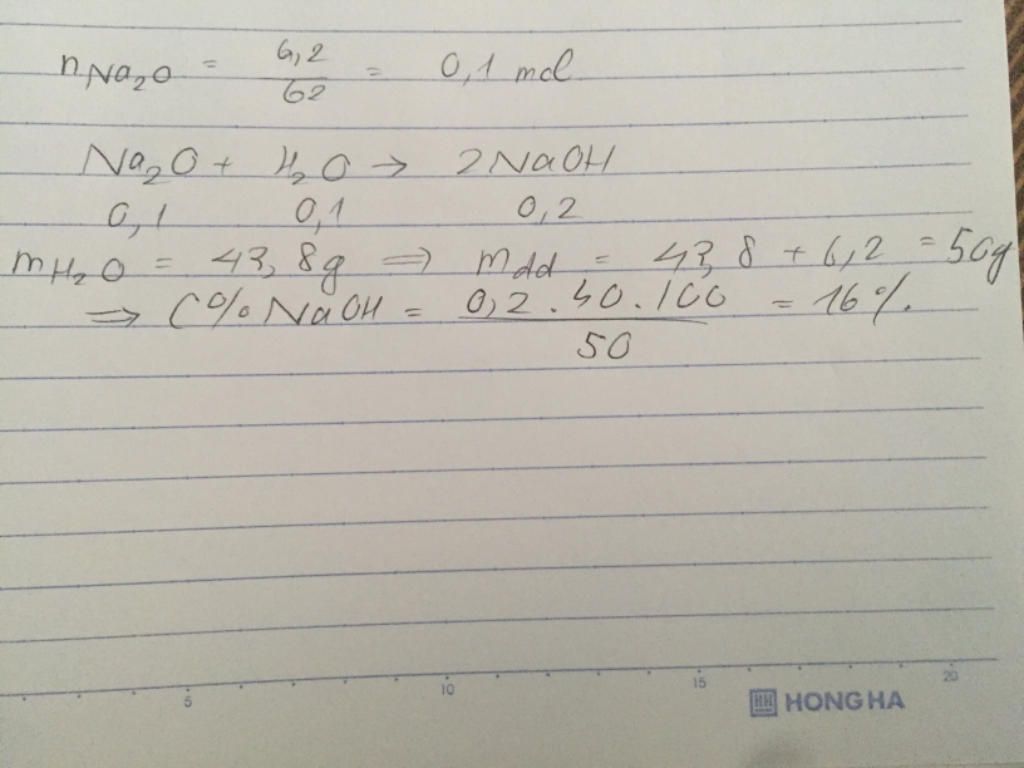 n Na₂O = 6,2 / 62 = 0,1 mol
Na₂O + H₂O → 2NaOH
0,1 0,1 0,2
m H₂O = 43,8g ⇒ mdd = 43,8 + 6,2 = 50g
⇒ C% NaOH = 0,2 . 40 . 100 / 50 = 16%.
5 10 15 20
HH HONG HA